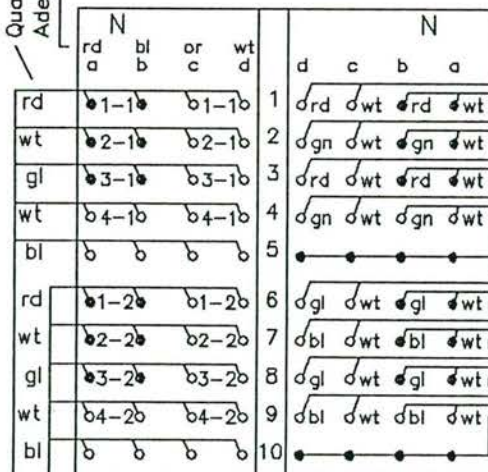 Qua
Ade
N N
rd bl or wt
a b c d d c b a
rd 1-1 1-1 1 rd wt rd wt
wt 2-1 2-1 2 gn wt gn wt
gl 3-1 3-1 3 rd wt rd wt
wt 4-1 4-1 4 gn wt gn wt
bl 5
rd 1-2 1-2 6 gl wt gl wt
wt 2-2 2-2 7 bl wt bl wt
gl 3-2 3-2 8 gl wt gl wt
wt 4-2 4-2 9 bl wt bl wt
bl 10